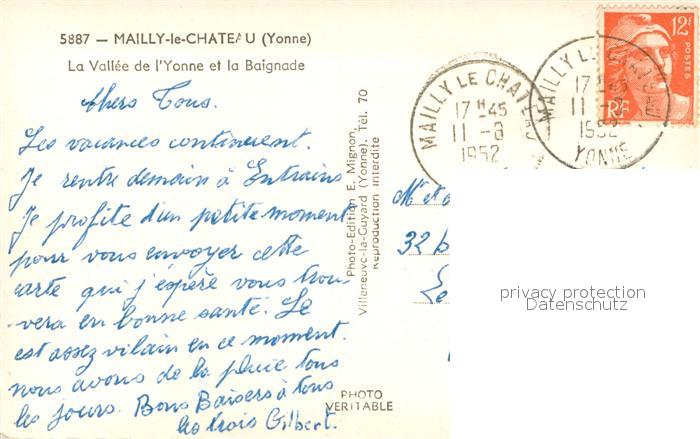 5887 — MAILLY-le-CHATEAU (Yonne)
La Vallée de l'Yonne et la Baignade
Chers Tous.
Les vacances continuent.
Je rentre demain à Entrains
Je profite d'un petite moment
pour vous envoyer cette
carte qui j'espère vous trou-
-vera en bonne santé. Le
est assez vilain en ce moment.
nous avons de la pluie tous
les jours. Bons Baisers à tous
les trois Gilbert.
Photo-Edition E. Mignon,
Villeneuve-la-Guyard (Yonne). Tél. 70
Reproduction interdite
PHOTO
VERITABLE
MAILLY LE CHAT
17 H 45
11 -8
1952
MAILLY LE CHAT
17 H 45
11 -
1952
YONNE
12F
POSTES
RF
Mr et
32 b
Le
privacy protection
Datenschutz